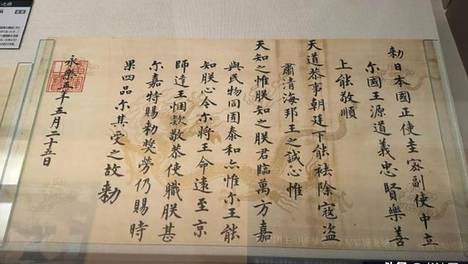 勅日本國正使圭密副使中立
尔國王源道義忠賢樂善
上能敬順
天道恭事朝廷下能袪除寇盗
肅清海邦王之誠心惟
天知之惟朕知之朕君臨萬方嘉
與民物同囿泰和亦惟尔王能
知朕心今尔将王命遠至京
師達王悃欵敬恭使職朕甚
尔嘉特賜勅奬勞仍賜時
果四品尔其受之故勅
永樂五年五月二十五日